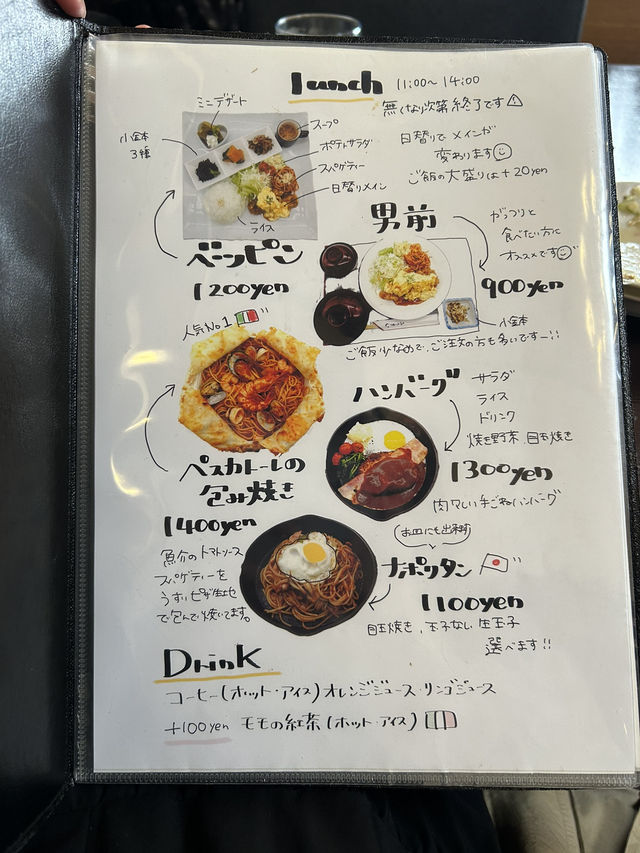 lunch 11:00~14:00
無くなり次第終了です⚠
ミニデザート
スープ
小金本
3種
ポテトサラダ
スパゲティー
日替りメイン
ライス
日替りで メインが
変わります☺
ご飯の大盛りは+20yen
ベーッピン
1200yen
男前
がっつりと
食べたい方に
オススメです☺
900yen
小金本
ご飯少なめで、ご注文の方も多いですー!!
人気No1
ペスカトーレの
包み焼き
1400yen
魚介のトマトソース
スパゲティーを
うすいピザ生地
で包んで焼いてます。
ハンバーグ
サラダ
ライス
ドリンク
焼き野菜 目玉焼き
1300yen
肉々しい手ごねハンバーグ
お皿にも出来ます
ナポリタン
1100yen
目玉焼き、玉子なし 生玉子
選べます!!
Drink
コーヒー(ホット・アイス)オレンジジュース・リンゴジュース
+100yen モモの紅茶(ホット・アイス)